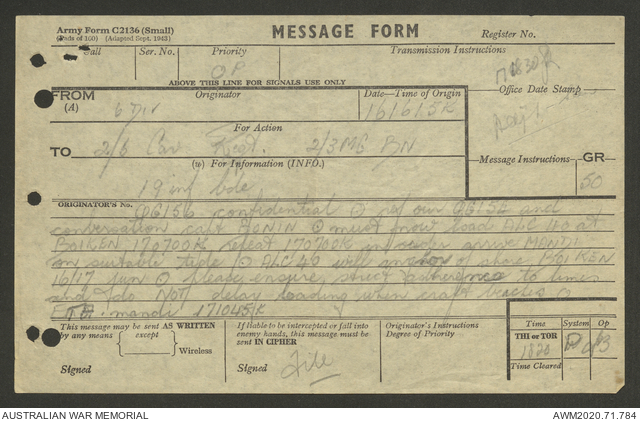 Army Form C2136 (Small)
(Pads of 100) (Adapted Sept. 1943)
MESSAGE FORM
Register No.
Call Ser. No. Priority Transmission Instructions
OP
ABOVE THIS LINE FOR SIGNALS USE ONLY
FROM Originator Date—Time of Origin Office Date Stamp
(A) 6 Div 161615K
For Action
TO 2/6 Cav Regt. 2/3 MG BN
(W) For Information (INFO.) Message Instructions GR
19 inf bde 50
ORIGINATOR'S No.
OG156 confidential O ref our OG152 and
conversation capt RONIN O must now load ALC 160 at
BOIKEN 170700K repeat 170700K in order arrive MANDI
on suitable tide O ALC 40 will anchor off shore BOIKEN
16/17 jun O please ensure strict adherence to times
and do NOT delay loading when craft beaches O
mandi 171045K
This message may be sent AS WRITTEN
by any means except Wireless
Signed
If liable to be intercepted or fall into
enemy hands, this message must be
sent IN CIPHER
Signed
Originator's Instructions
Degree of Priority
Time System Op
THI or TOR
1820
Time Cleared
AUSTRALIAN WAR MEMORIAL
AWM2020.71.784